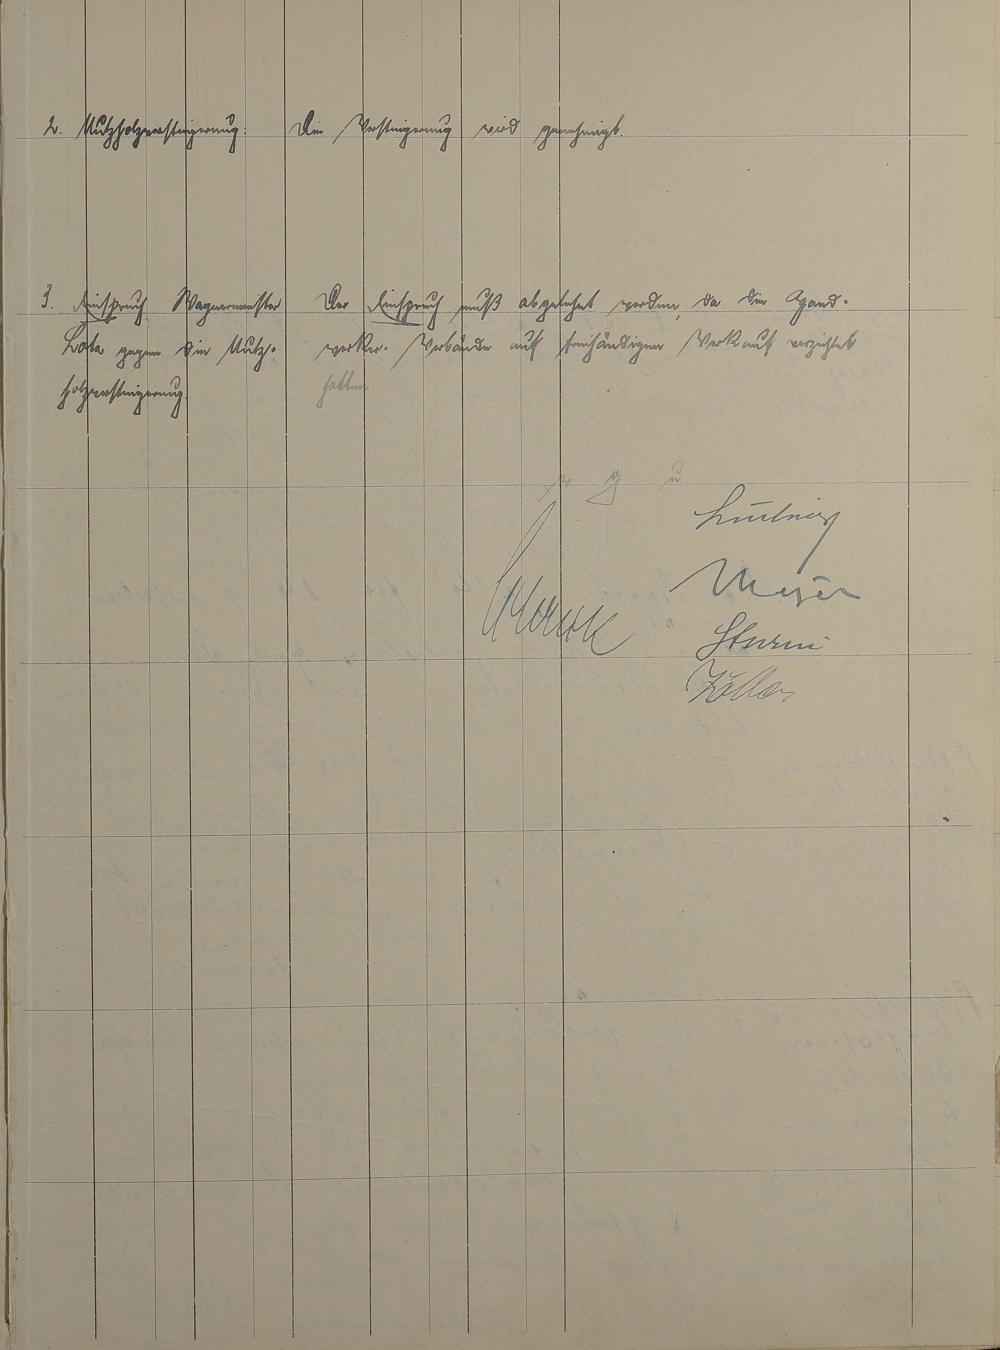 2. Nutzholzversteigerung: Die Versteigerung wird genehmigt.
3. Einspruch Wagnermeister Der Einspruch muß abgelehnt werden, da die Hand-
gegen die Nutz- werker-Verbände auf freihändigen Verkauf verzichtet
holzversteigerung. hatten.
v g u
Ludwig
Meyer
Sturm
Zöller